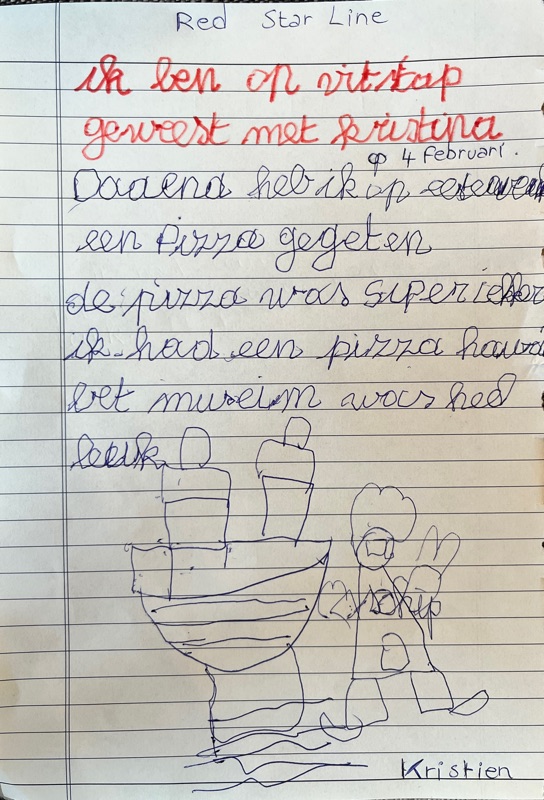 Red Star Line
ik ben op uitstap
geweest met kristina
op 4 Februari.
Daarna heb ik op
een Pizza gegeten
de pizza was super lekker
ik had een pizza hawai
het museum was heel
leuk
schip
Kristien